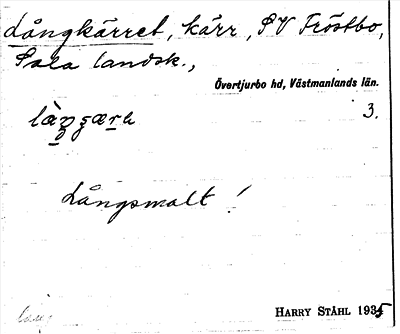 Långkärret, kärr, SV Fröstbo,
Sala landsk.,
Övertjurbo hd, Västmanlands län.
3.
Långsmalt!
HARRY STÅHL 1935